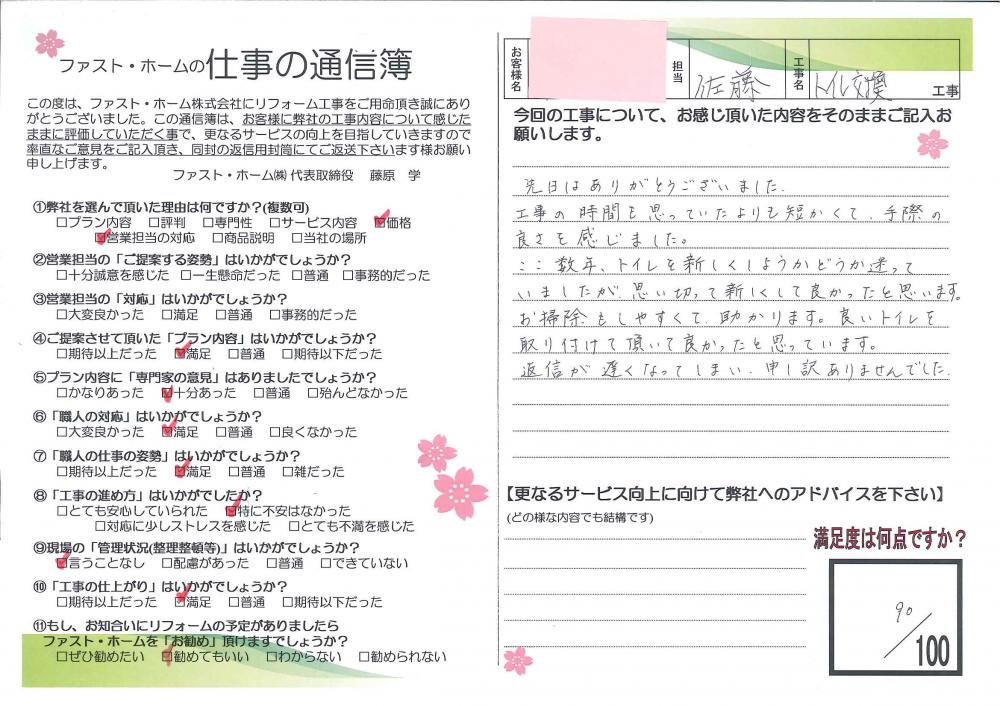 ファスト・ホームの仕事の通信簿
この度は、ファスト・ホーム株式会社にリフォーム工事をご用命頂き誠にあり
がとうございました。この通信簿は、お客様に弊社の工事内容について感じた
ままに評価していただく事で、更なるサービスの向上を目指していきますので
率直なご意見をご記入頂き、同封の返信用封筒にてご返送下さいます様お願い
申し上げます。
ファスト・ホーム㈱ 代表取締役　藤原　学
①弊社を選んで頂いた理由は何ですか?(複数可)
□プラン内容 □評判 □専門性 □サービス内容 ☑価格
☑営業担当の対応 □商品説明 □当社の場所
②営業担当の「ご提案する姿勢」はいかがでしょうか?
□十分誠意を感じた □一生懸命だった □普通 □事務的だった
③営業担当の「対応」はいかがでしょうか?
□大変良かった □満足 □普通 □事務的だった
④ご提案させて頂いた「プラン内容」はいかがでしょうか?
□期待以上だった ☑満足 □普通 □期待以下だった
⑤プラン内容に「専門家の意見」はありましたでしょうか?
□かなりあった ☑十分あった □普通 □殆んどなかった
⑥「職人の対応」はいかがでしょうか?
□大変良かった ☑満足 □普通 □良くなかった
⑦「職人の仕事の姿勢」はいかがでしょうか?
□期待以上だった ☑満足 □普通 □雑だった
⑧「工事の進め方」はいかがでしたか?
□とても安心していられた ☑特に不安はなかった
□対応に少しストレスを感じた □とても不満を感じた
⑨現場の「管理状況(整理整頓等)」はいかがでしょうか?
☑言うことなし □配慮があった □普通 □できていない
⑩「工事の仕上がり」はいかがでしょうか?
□期待以上だった ☑満足 □普通 □期待以下だった
⑪もし、お知合いにリフォームの予定がありましたら
ファスト・ホームを「お勧め」頂けますでしょうか?
□ぜひ勧めたい ☑勧めてもいい □わからない □勧められない
お客様名 担当 佐藤 工事名 トイレ交換 工事
今回の工事について、お感じ頂いた内容をそのままご記入お
願いします。
先日はありがとうございました。
工事の時間も思っていたよりも短かくて、手際の
良さを感じました。
ここ数年、トイレを新しくしようかどうか迷って
いましたが、思い切って新しくして良かったと思います。
お掃除もしやすくて、助かります。良いトイレを
取り付けて頂いて良かったと思っています。
返信が遅くなってしまい、申し訳ありませんでした。
【更なるサービス向上に向けて弊社へのアドバイスを下さい】
(どの様な内容でも結構です)
満足度は何点ですか？
90/100